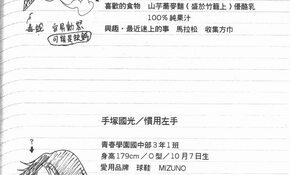 喜歡的食物　山芋蕎麥麵（盛於竹籠上）優酪乳
100%純果汁
興趣・最近迷上的事　馬拉松　收集方巾
手塚國光／慣用左手
青春學園國中部3年1班
身高179cm／O型／10月7日生
愛用品牌　球鞋　MIZUNO